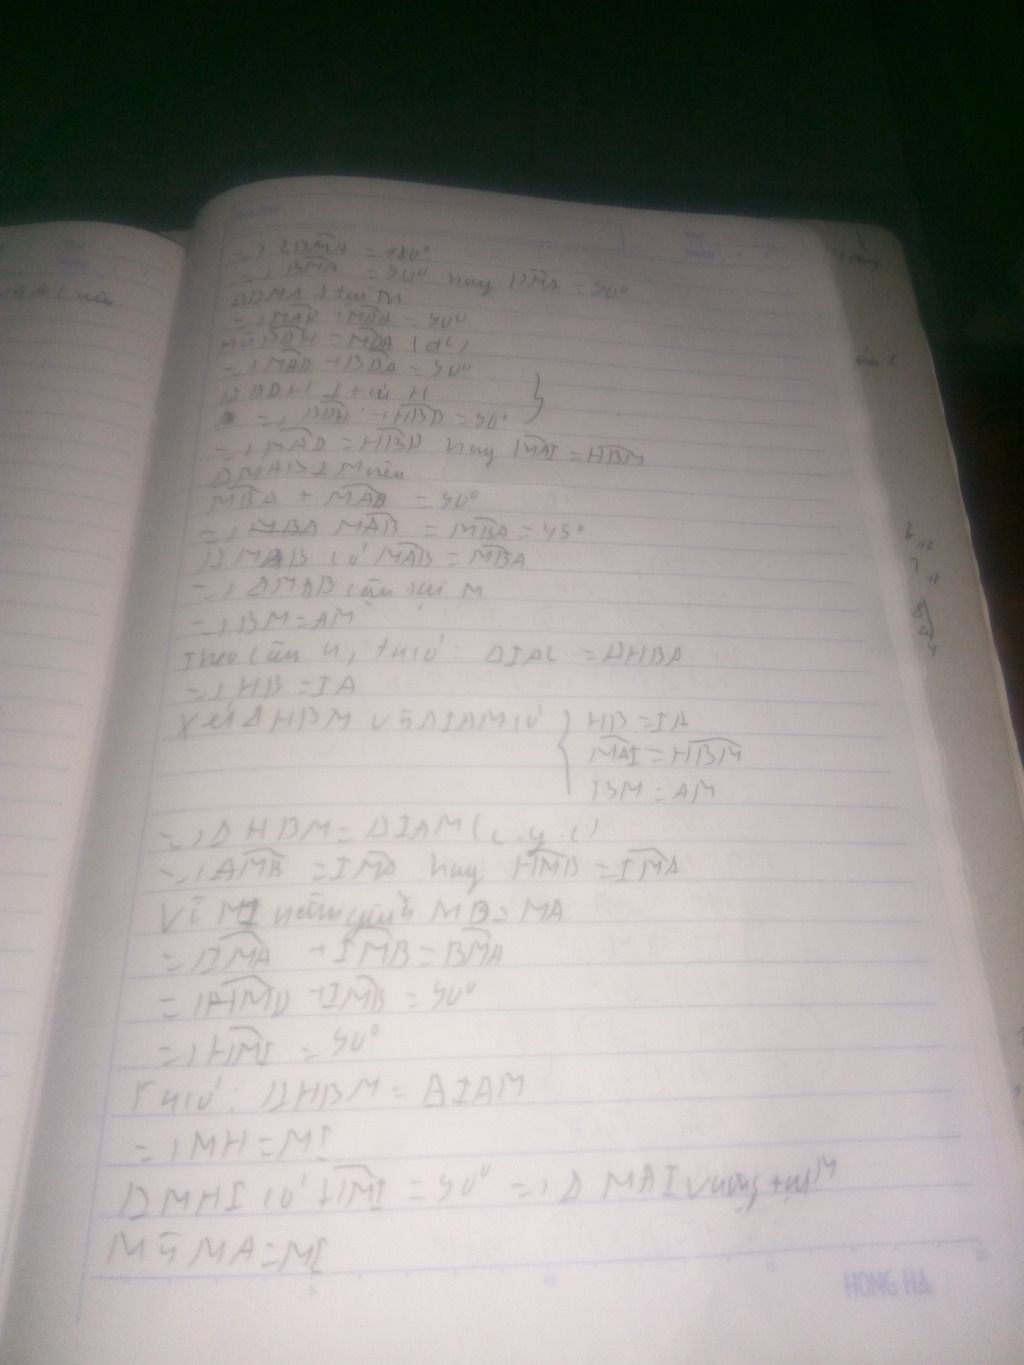 => 2BMA = 180°
=> BMA = 90° hay DMA = 90°
ΔDMA ⊥ tại M
=> MAD + MDA = 90°
mà BDH = MDA (đđ)
=> MAD + BDA = 90°
Δ BDH ⊥ tại H
=> BDH + HBD = 90°
=> MAD = HBD hay MAI = HBM
ΔMAB ⊥ M nên
MBA + MAB = 90°
=> MAB = MBA = 45°
Δ MAB có MAB = MBA
=> ΔMAB cân tại M
=> BM = AM
Theo câu a, ta có: ΔIAC = ΔHBA
=> HB = IA
Xét ΔHBM và ΔIAM có HB = IA
MAI = HBM
BM = AM
=> Δ HBM = ΔIAM (c.g.c)
=> AMB = IMA hay HMB = IMA
Vì MI nằm giữa MB = MA
=> IMA + IMB = BMA
=> HMB + IMB = 90°
=> HMI = 90°
Ta có: ΔHBM = ΔIAM
=> MH = MI
Δ MHI có HMI = 90° => Δ MAI vuông tại M
Mà MA = MI
HONG HA